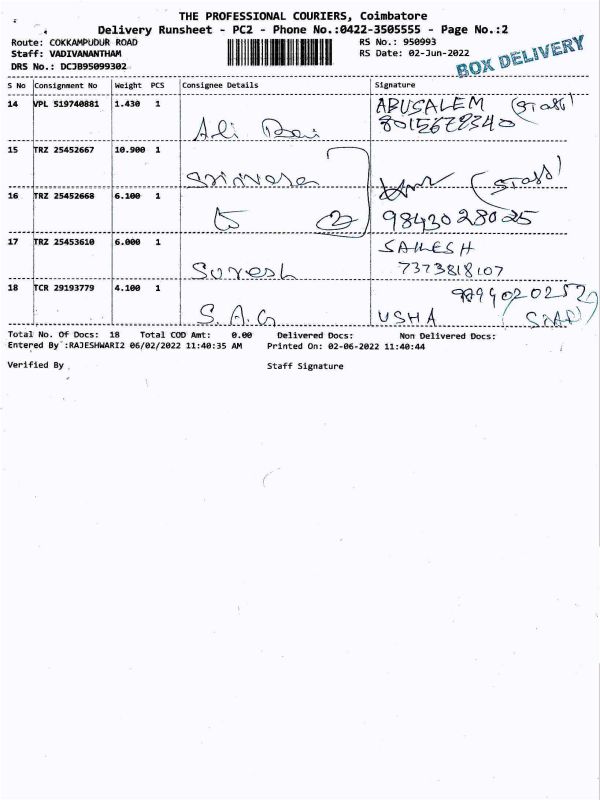 THE PROFESSIONAL COURIERS, Coimbatore
Delivery Runsheet - PC2 - Phone No.:0422-3505555 - Page No.:2
Route: COKKAMPUDUR ROAD RS No.: 950993
Staff: VADIVANANTHAM RS Date: 02-Jun-2022
DRS No.: DCJB95099302
BOX DELIVERY
S No Consignment No Weight PCS Consignee Details Signature
14 VPL 519740881 1.430 1 ABUSALEM (Staff)
Ali Bai 8015672340
15 TRZ 25452667 10.900 1
Srinivasa (Staff)
16 TRZ 25452668 6.100 1
5 2 9843028025
17 TRZ 25453610 6.000 1 SAILESH
Suresh 7373818107
18 TCR 29193779 4.100 1 9994020252
S.A.G USHA (Staff)
Total No. Of Docs: 18 Total COD Amt: 0.00 Delivered Docs: Non Delivered Docs:
Entered By :RAJESHWARI2 06/02/2022 11:40:35 AM Printed On: 02-06-2022 11:40:44
Verified By Staff Signature